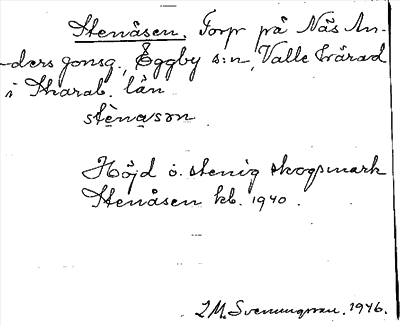 Stenåsen. Torp på Näs An-
-dersgonsg., Eggby s:n, Valle härad
i Skarab. län
stènasən
Höjd o. stenig skogsmark
Stenåsen kb. 1940.
I. M. Svenungsson. 1946.